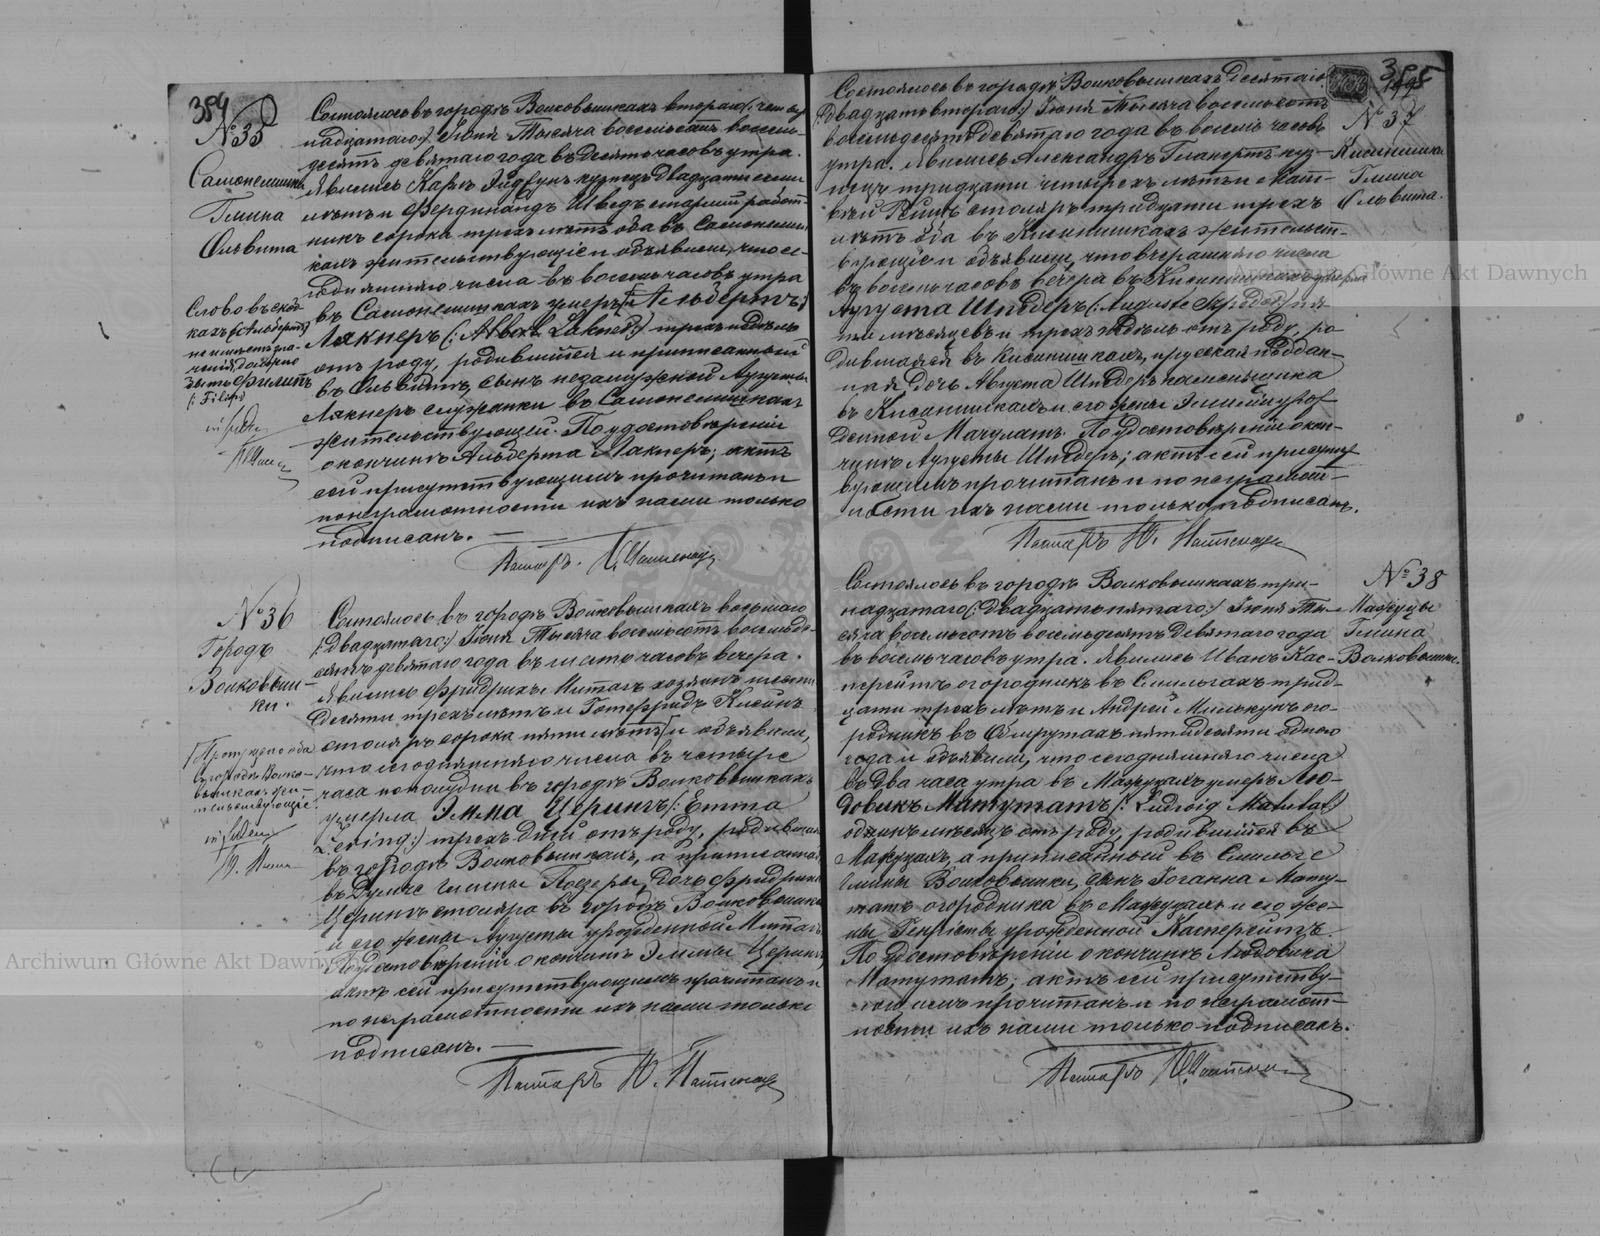 384
№ 35
Самонелишки
Гмина
Ольвита
Слово въ скоб-
кахъ (:Альбертъ)
не имѣетъ зна-
ченія, должно
быть Филипъ
(: Filip)
Состоялось въ городѣ Волковышкахъ втораго (: четыр-
надцатаго:) Іюня Тысяча восемьсотъ восемь-
десятъ девятаго года въ десять часовъ утра.
Явились Карлъ кузнецъ двадцати семи
лѣтъ и Фердинандъ Шведъ старшій работ-
никъ сорока трехъ лѣтъ оба въ Самонелиш-
кахъ жительствующіе и объявили, что се-
годняшняго числа въ восемь часовъ утра
въ Самонелишкахъ умеръ [: Альбертъ:]
Лакнеръ (: Lakner:) трехъ недѣль
отъ роду, родившійся и приписанный
въ Ольвитѣ, сынъ незамужной Августы
Лакнеръ служанки въ Самонелишкахъ
жительствующей. По удостовѣреніи
о кончинѣ Альберта Лакнеръ; актъ
сей присутствующимъ прочитанъ и
по неграмотности ихъ нами только
подписанъ. —
Пасторъ
№ 36
Городъ
Волковыш-
ки.
оба
въ городѣ Волко-
вышкахъ жи-
тельствующіе.
Состоялось въ городѣ Волковышкахъ восьмаго
(: двадцатаго:) Іюня Тысяча восемьсотъ восемьде-
сятъ девятаго года въ шесть часовъ вечера.
Явились Фридрихъ Митагъ хозяинъ шесть-
десяти трехъ лѣтъ и Готфридъ
столяръ сорока пяти лѣтъ и объявили,
что сегодняшняго числа въ четыре
часа пополудни въ городѣ Волковышкахъ
умерла Эмма Церингъ (: Emma
Zering:) трехъ дней отъ роду, родившаяся
въ городѣ Волковышкахъ, а приписанная
въ гмины дочь Фридриха
Церингъ столяра въ городѣ Волковышкахъ
и его жены Августы урожденной Митагъ
По удостовѣреніи о кончинѣ Эммы Церингъ,
актъ сей присутствующимъ прочитанъ и
по неграмотности ихъ нами только
подписанъ. —
Пасторъ
385
№ 37
Кисинишки
Гмина
Ольвита.
Состоялось въ городѣ Волковышкахъ десятаго
(: двадцать втораго:) Іюня Тысяча восемьсотъ
восемьдесятъ девятаго года въ восемь часовъ
утра. Явились Александръ куз-
нецъ тридцати четырехъ лѣтъ и Мат-
вѣй столяръ тридцати трехъ
лѣтъ оба въ Кисинишкахъ жительст-
вующіе и объявили, что вчерашняго числа
въ восемь часовъ вечера въ Кисинишкахъ умерла
Августа Шнедеръ (: Auguste :) пя-
ти мѣсяцевъ и трехъ недѣль отъ роду, ро-
дившаяся въ Кисинишкахъ, прусская поддан-
ная дочь Августа Шнедеръ каменьщика
въ Кисинишкахъ и его жены Эмиліи урож-
денной Мачулатъ. По удостовѣреніи о кон-
чинѣ Августы Шнедеръ; актъ сей присутст-
вующимъ прочитанъ и по неграмот-
ности ихъ нами только подписанъ.
Пасторъ
№ 38
Мажуцы
Гмина
Волковышки.
Состоялось въ городѣ Волковышкахъ три-
надцатаго (: двадцать пятаго:) Іюня Ты-
сяча восемьсотъ восемьдесятъ девятаго года
въ восемь часовъ утра. Явились Иванъ Кас-
перейтъ огородникъ въ Смильгахъ трид-
цати трехъ лѣтъ и Андрей Милькунъ ого-
родникъ въ пятидесяти одного
года и объявили, что сегодняшняго числа
въ два часа утра въ Мажуцахъ умеръ Лю-
довикъ Матутатъ (: Ludwig Matutat:)
одинъ мѣсяцъ отъ роду, родившійся въ
Мажуцахъ, а приписанный въ Смильге
гмины Волковышки, сынъ Іоганна Мату-
татъ огородника въ Мажуцахъ и его же-
ны Генріеты урожденной Касперейтъ.
По удостовѣреніи о кончинѣ Людовика
Матутатъ; актъ сей присутству-
ющимъ прочитанъ и по неграмот-
ности ихъ нами только подписанъ.
Пасторъ
Archiwum Główne Akt Dawnych
Archiwum Główne Akt Dawnych